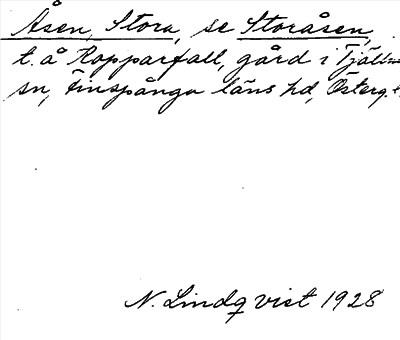 Åsen, Stora, se Storåsen,
t. å Ropparfall, gård i Tjällmo
sn, Finspånga läns hd, Österg.
N. Lindqvist 1928